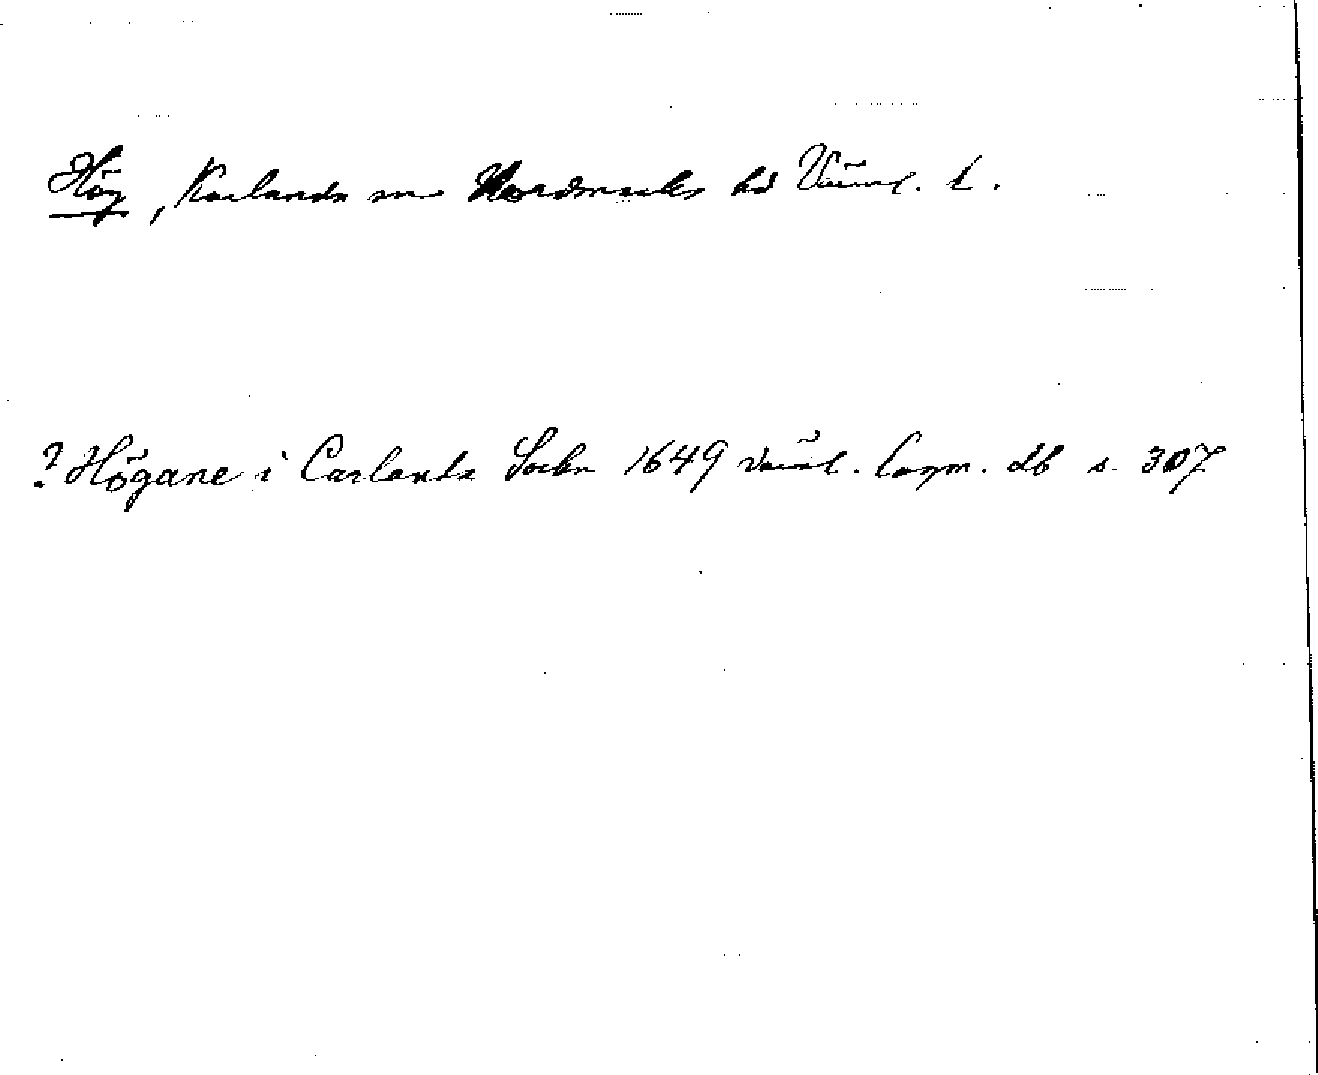 Hög, Karlanda sn Nordmarks hd Värml. l.
? Högane i Carlanda Sockn 1649 Värml. lagm. db s. 307